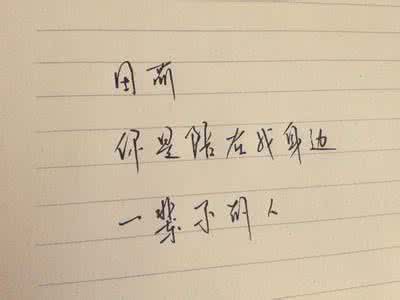 你是陪在我身边
一辈子的人